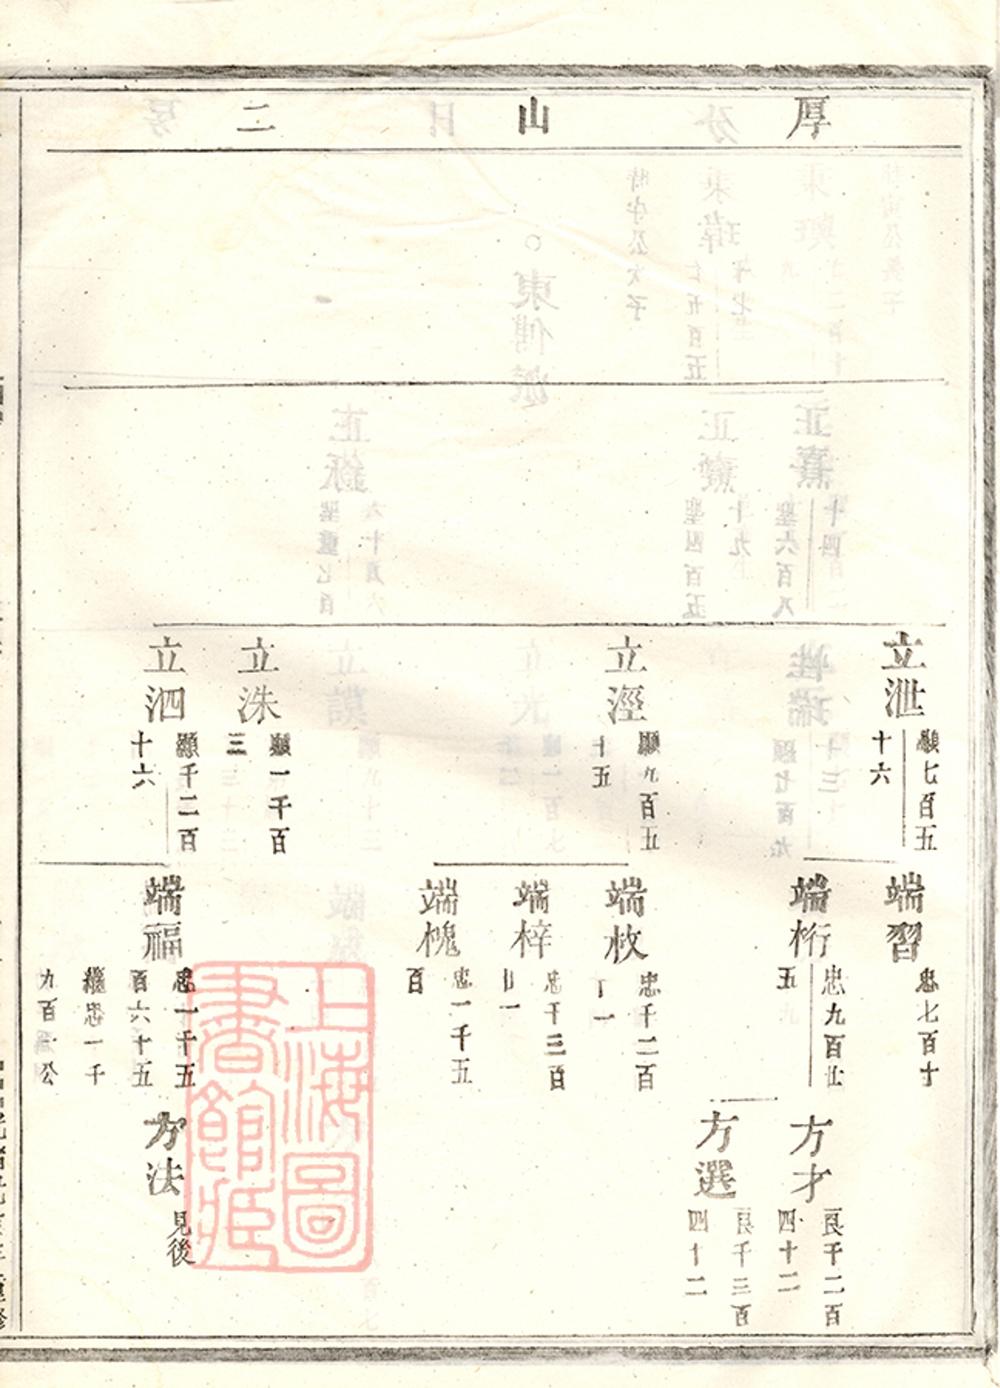 厚山二
立泄
顯七百五
十六
立溼
顯九百五
十五
立洙
顯一千百
三
立泗
顯千二百
十六
端習
忠七百十
端桁
忠九百廿
五
端枚
忠千二百
一
端梓
忠千三百
廿一
端槐
忠一千五
百
端福
忠一千五
百六十五
繼忠一千
九百一公
方才
良千二百
四十二
方選
良千三百
四十二
方法
見後
上海圖
書館藏